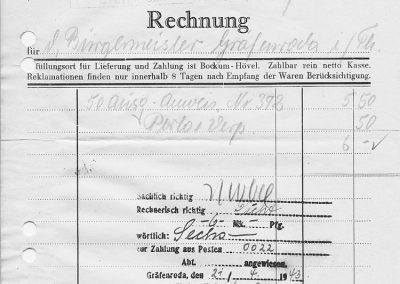 Rechnung
für d. Bürgermeister Gräfenroda i/Th.
füllungsort für Lieferung und Zahlung ist Bockum-Hövel. Zahlbar rein netto Kasse.
Reklamationen finden nur innerhalb 8 Tagen nach Empfang der Waren Berücksichtigung.
50 Ausg.-Anweis. Nr 392 5 50
Porto u Verp. 50
6 -
Sachlich richtig
Rechnerisch richtig
-6- Mk. Pfg.
wörtlich: Sechs
zur Zahlung aus Posten 0022
Abt. angewiesen.
Gräfenroda, den 21/ 4. 1943